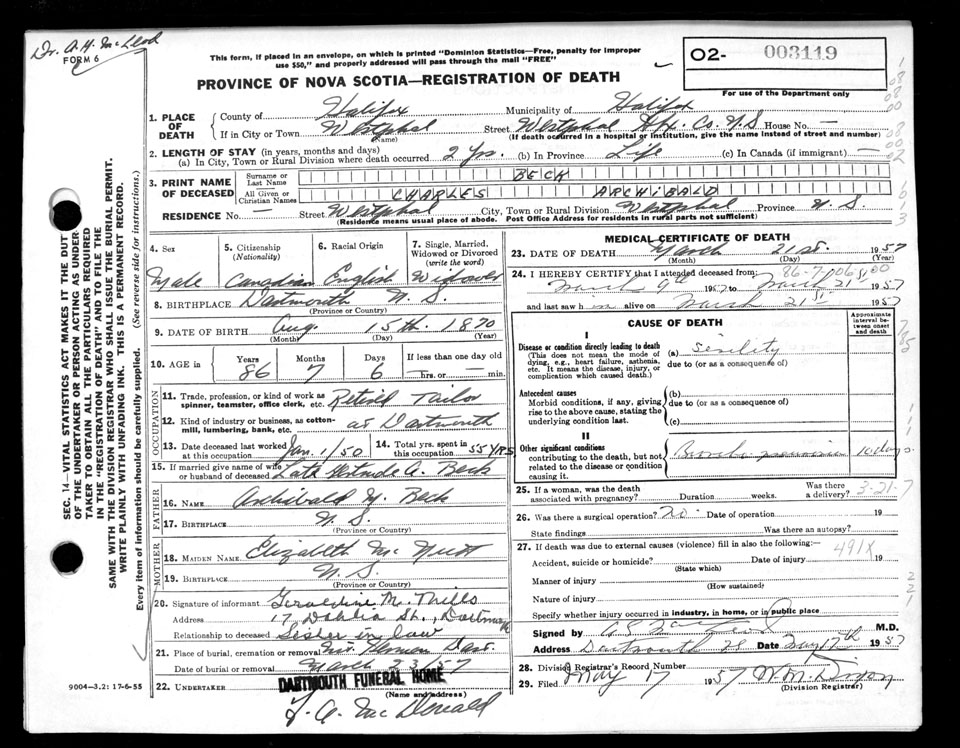 Dr. A. H. McLeod
FORM 6
This form, if placed in an envelope, on which is printed "Dominion Statistics—Free, penalty for improper
use $50," and properly addressed will pass through the mail "FREE"
O2- 003119
For use of the Department only
PROVINCE OF NOVA SCOTIA—REGISTRATION OF DEATH
1. PLACE OF DEATH
County of Halifax Municipality of Halifax
If in City or Town Westphal Street Westphal Hfx. Co. N.S House No. —
(Name) (If death occurred in a hospital or institution, give the name instead of street and number)
2. LENGTH OF STAY (in years, months and days)
(a) In City, Town or Rural Division where death occurred 2 yrs. (b) In Province Life (c) In Canada (if immigrant) —
3. PRINT NAME OF DECEASED
Surname or Last Name BECK
All Given or Christian Names CHARLES ARCHIBALD
RESIDENCE No. — Street Westphal City, Town or Rural Division Westphal Province N. S.
(Residence means usual place of abode. Post Office Address for residents in rural parts not sufficient)
4. Sex 5. Citizenship (Nationality) 6. Racial Origin 7. Single, Married, Widowed or Divorced (write the word)
Male Canadian English Widower
8. BIRTHPLACE Dartmouth N. S.
(Province or Country)
9. DATE OF BIRTH Aug. 15th. 1870
(Month) (Day) (Year)
10. AGE in Years Months Days If less than one day old
86 7 6 — hrs. or — min.
OCCUPATION
11. Trade, profession, or kind of work as spinner, teamster, office clerk, etc. Retired Tailor
12. Kind of industry or business, as cotton-mill, lumbering, bank, etc. at Dartmouth
13. Date deceased last worked at this occupation Jan. 1/50 14. Total yrs. spent in this occupation 55 YRS
15. If married give name of wife or husband of deceased Late Gertrude A. Beck
FATHER
16. NAME Archibald Beck
17. BIRTHPLACE N. S.
(Province or Country)
MOTHER
18. MAIDEN NAME Elizabeth McNutt
19. BIRTHPLACE N. S.
(Province or Country)
20. Signature of informant Geraldine M. Mills
Address 17, Dahlia St., Dartmouth
Relationship to deceased Sister in law
21. Place of burial, cremation or removal Mt. Hermon Dart.
Date of burial or removal March 23/57
22. UNDERTAKER DARTMOUTH FUNERAL HOME
(Name and address)
J. A. McDonald
9004—3.2: 17-6-55
MEDICAL CERTIFICATE OF DEATH
23. DATE OF DEATH March 21st. 1957
(Month) (Day) (Year)
24. I HEREBY CERTIFY that I attended deceased from
March 9th 1957 to March 21st 1957
and last saw him alive on March 21st 1957
CAUSE OF DEATH
Approximate interval between onset and death
I
Disease or condition directly leading to death (a) Senility
(This does not mean the mode of dying, e.g., heart failure, asthenia, etc. It means the disease, injury, or complication which caused death.) due to (or as a consequence of)
Antecedent causes (b)
Morbid conditions, if any, giving rise to the above cause, stating the underlying condition last. due to (or as a consequence of)
(c)
II
Other significant conditions Broncho pneumonia 10 days
contributing to the death, but not related to the disease or condition causing it.
25. If a woman, was the death associated with pregnancy? Duration weeks. Was there a delivery? 3-21-7
26. Was there a surgical operation? no. Date of operation 19
State findings Was there an autopsy?
27. If death was due to external causes (violence) fill in also the following: 491X
Accident, suicide or homicide? Date of injury 19
(State which)
Manner of injury
(How sustained)
Nature of injury
Specify whether injury occurred in industry, in home, or in public place
Signed by M.D.
Address Dartmouth NS Date May 17th 1957
28. Division Registrar's Record Number
29. Filed May 17 1957 W. M. Dixon
(Division Registrar)
SEC. 14—VITAL STATISTICS ACT MAKES IT THE DUTY
OF THE UNDERTAKER OR PERSON ACTING AS UNDER-
TAKER TO OBTAIN ALL THE PARTICULARS REQUIRED
IN THE "REGISTRATION OF DEATH" AND TO FILE THE
SAME WITH THE DIVISION REGISTRAR WHO SHALL ISSUE THE BURIAL PERMIT.
WRITE PLAINLY WITH UNFADING INK. THIS IS A PERMANENT RECORD.
Every item of information should be carefully supplied. (See reverse side for instructions.)